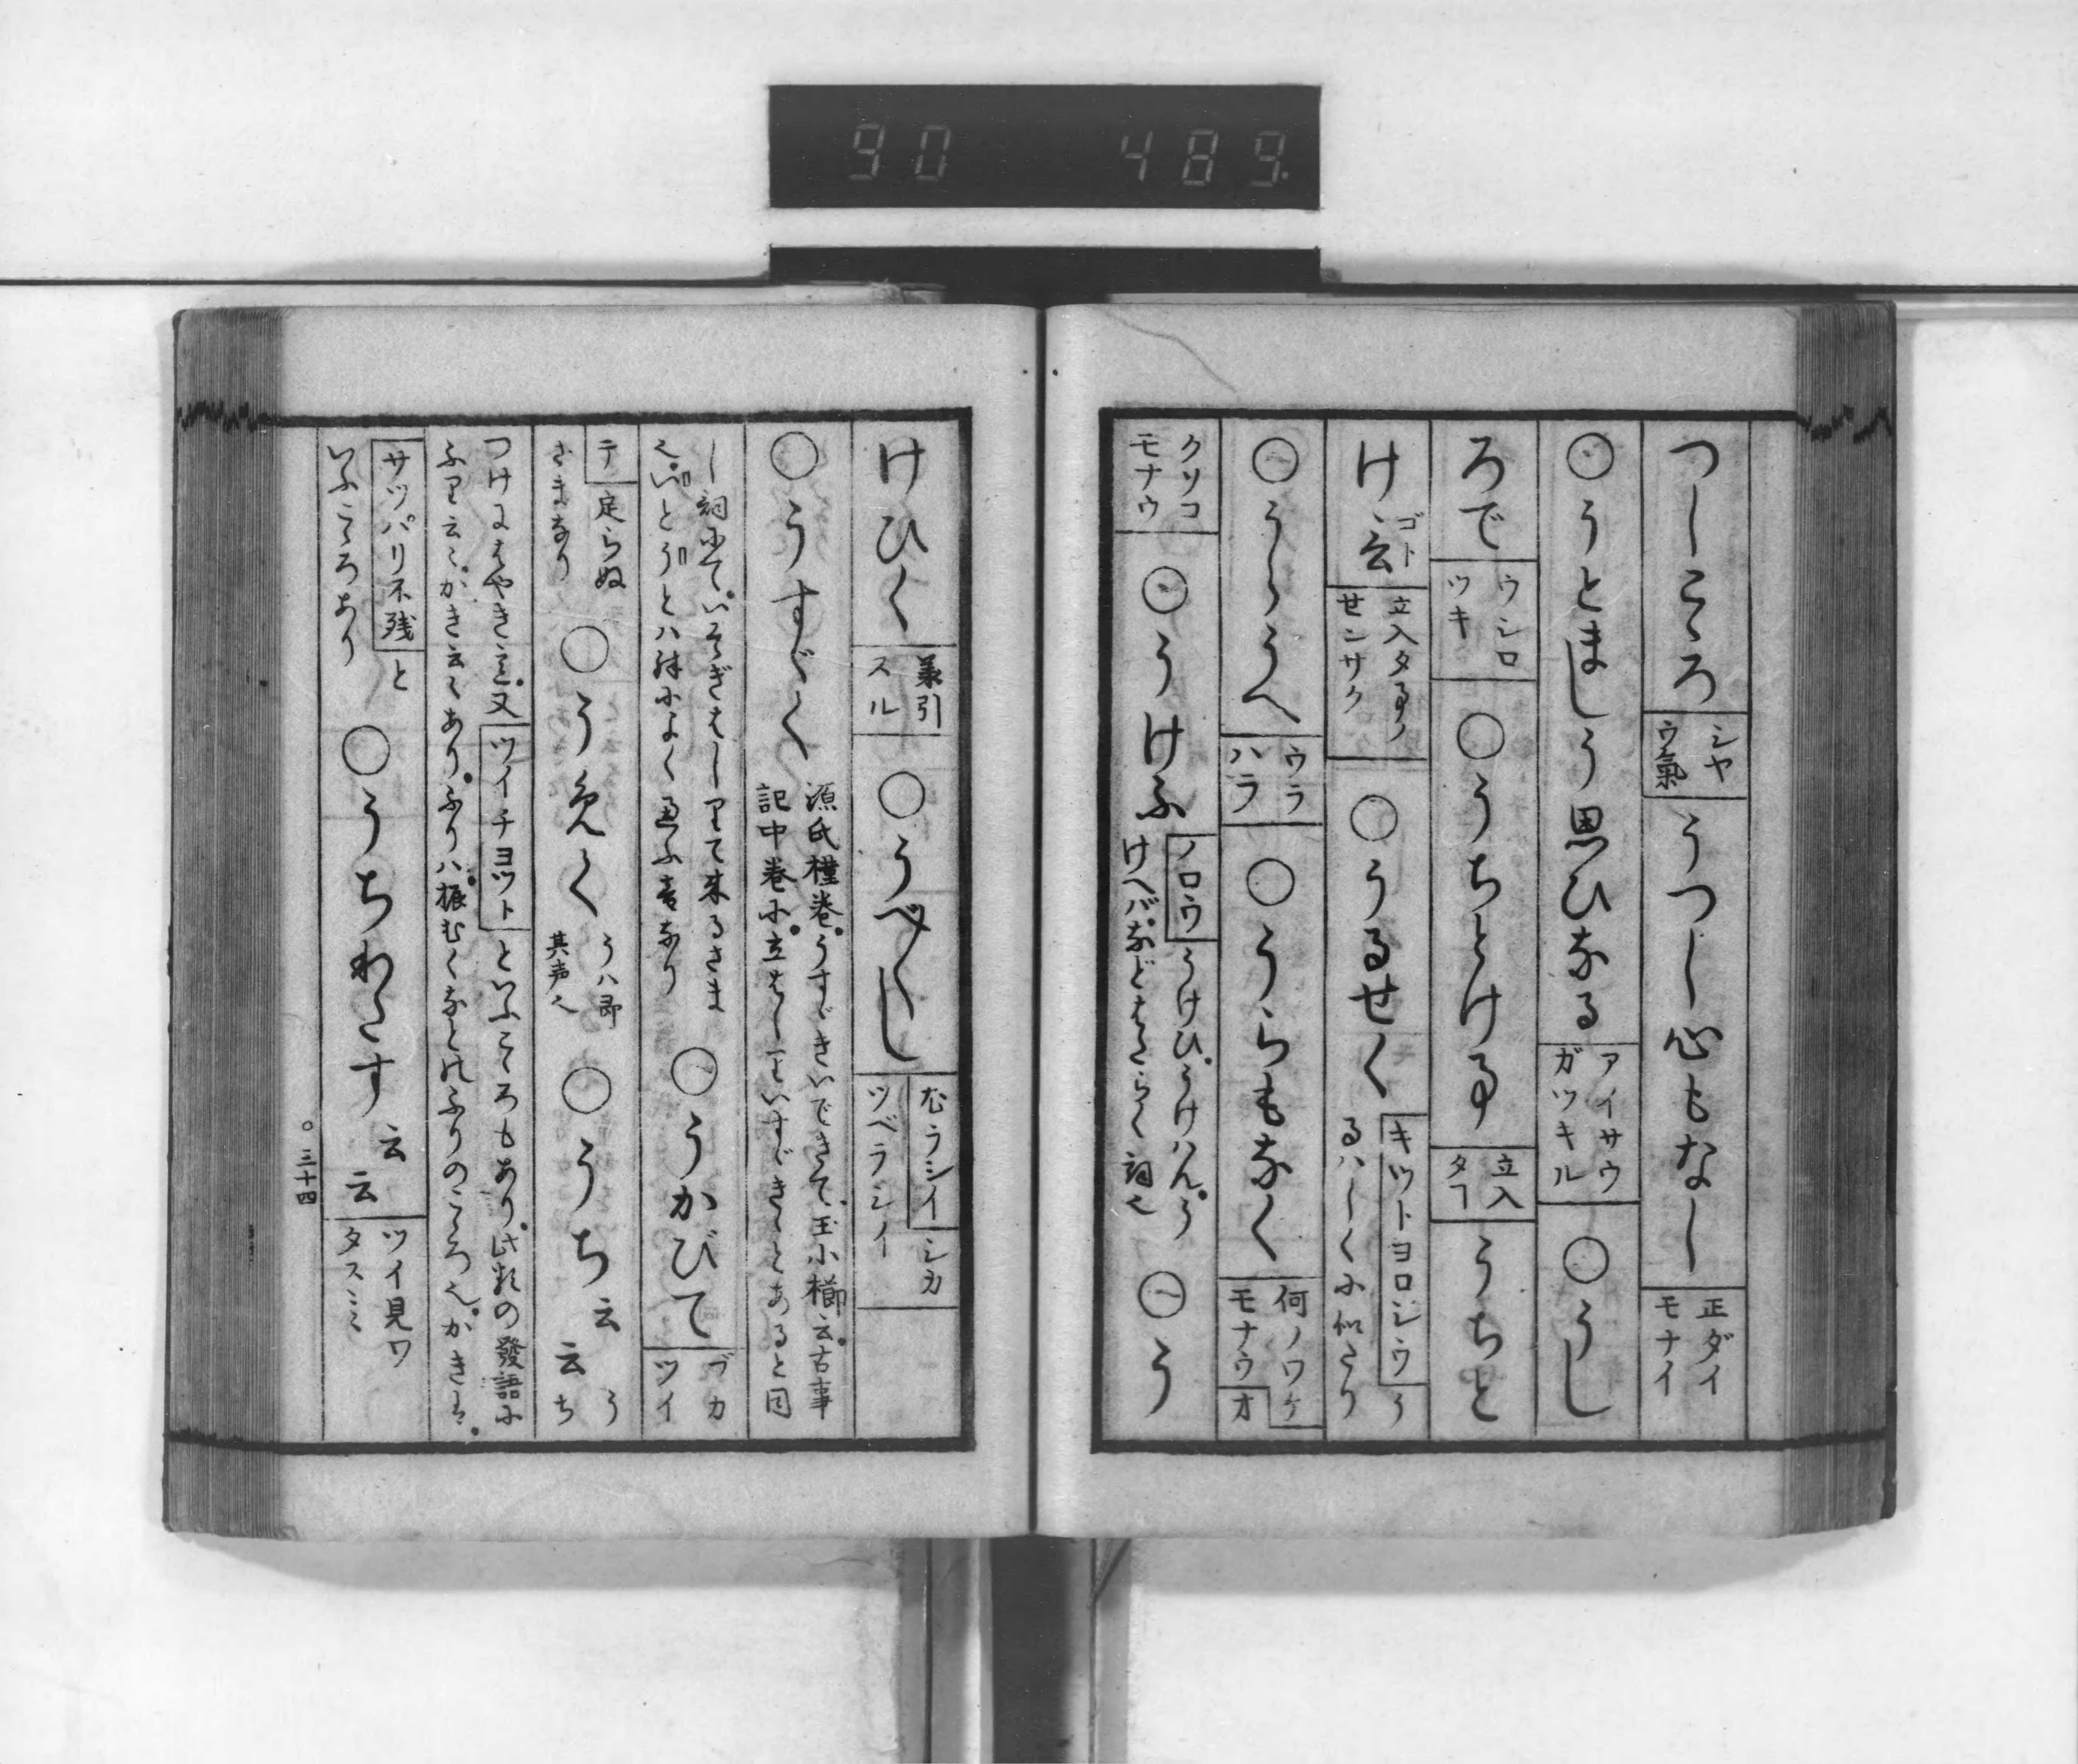 90 489.
つしころ シヤウ氣 うつし心もなし 正ダイモナイ
○うとましう思ひなる アイサウガツキル ○うし
ろで ウシロツキ ○うちとける 立入タ うちと
け云 ゴト 立入タ せンサク ○うるせく キツトヨロシウ うるハしくに似たり
○うしうへ ウラハラ ○うらもなく 何ノワケモナウ オ
クソコモナウ ○うけふ ノロウ うけひ うけはん うけへバなどはたらく詞也 ○う
けひく 義引スル ○うべべし むラシイ シカツベラシイ
○うすゞく 源氏槿巻うすゞきいできて玉小櫛云古事記中巻に立はしりいすゞきとあると同
し詞にていそぎはしりて来るさま也いとうとハ殊によく通ふ音なり ○うかびて ブカツイ
テ 定らぬさまなり ○うめく うハ即其声也 ○うち云云 うち
つけにはやき意又 ツイチヨツト といふころもあり此類の發語に
ふり云々かき云々ありふりハ振むくなどのふりのころ也かきは
サツパリ不残 といふころあり ○うちわたす云云 ツイ見ワタスミミ
三十四